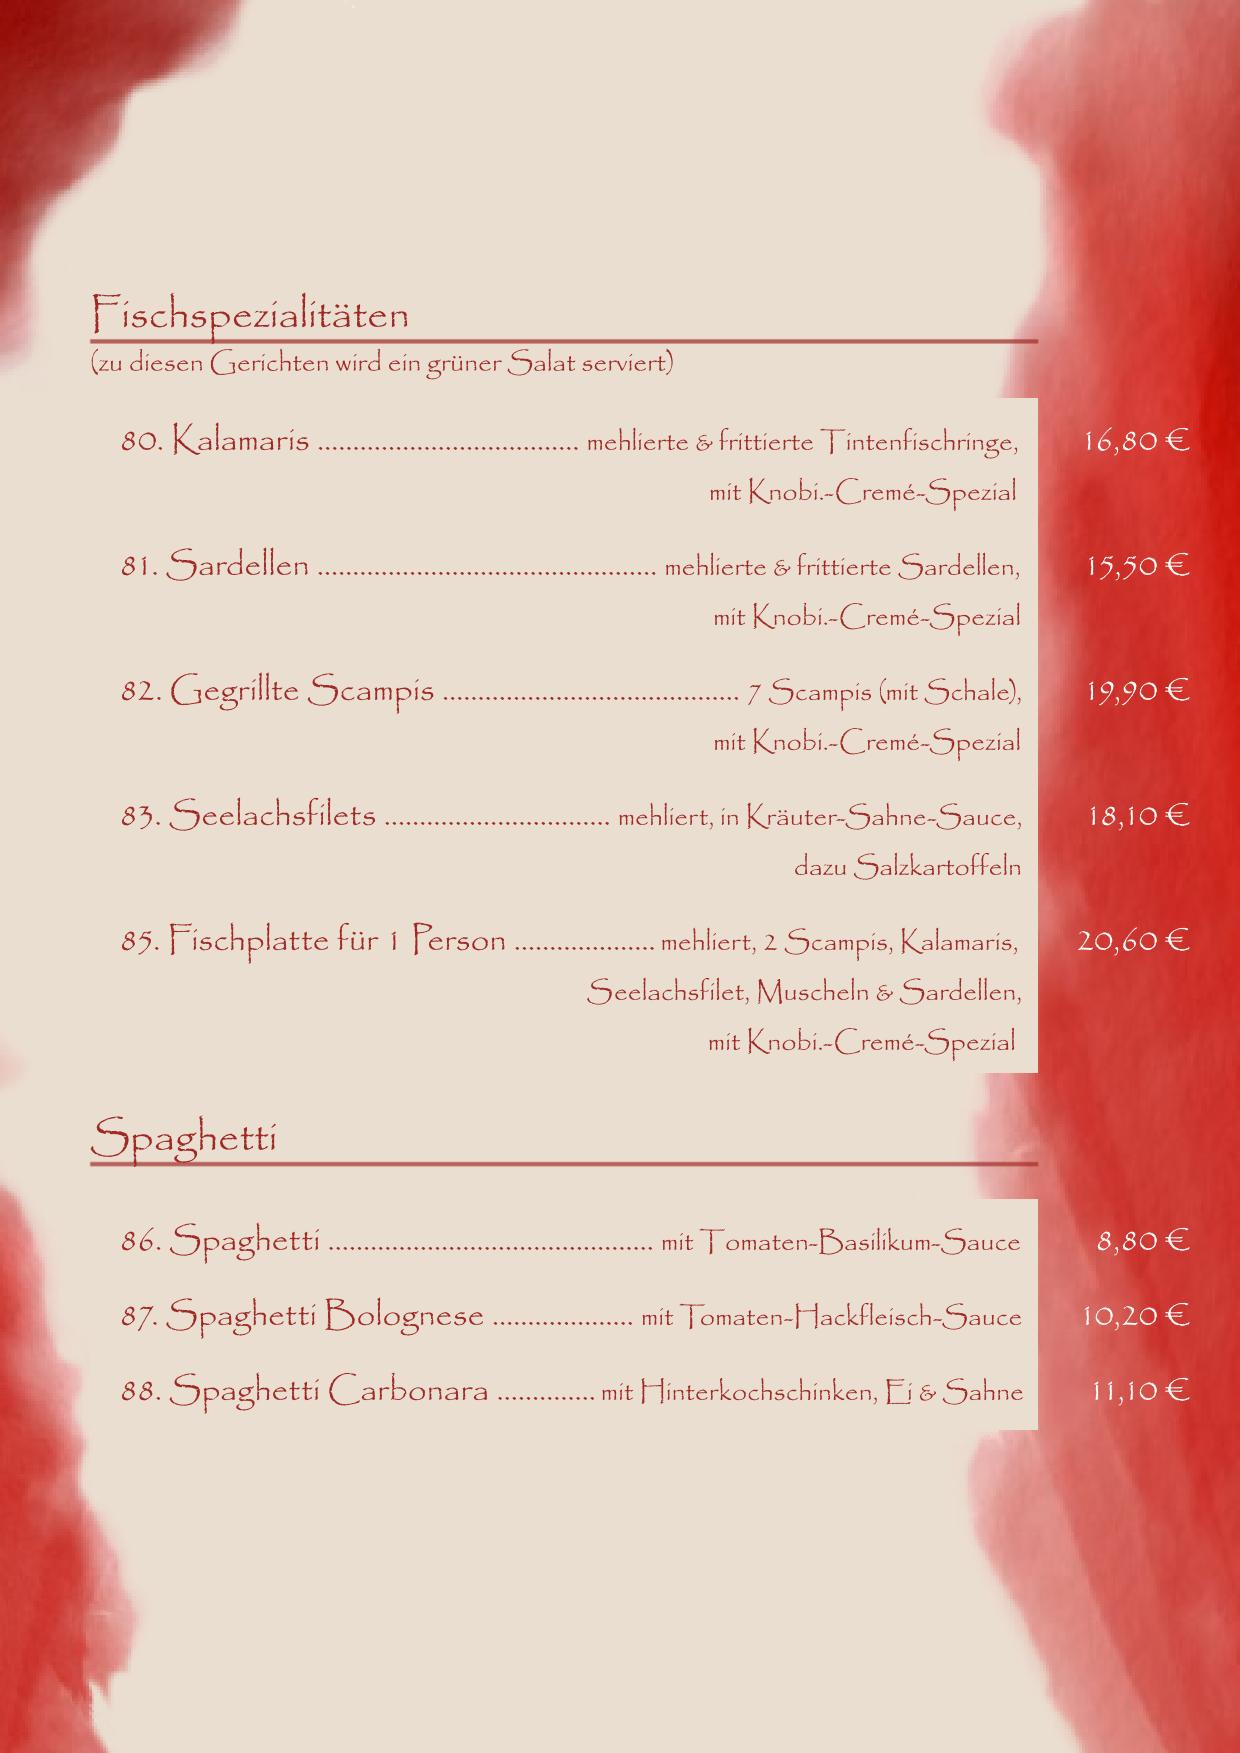 Fischspezialitäten
(zu diesen Gerichten wird ein grüner Salat serviert)
80. Kalamaris ..................................... mehlierte & frittierte Tintenfischringe, 16,80 €
mit Knobi.-Cremé-Spezial
81. Sardellen ................................................ mehlierte & frittierte Sardellen, 15,50 €
mit Knobi.-Cremé-Spezial
82. Gegrillte Scampis .......................................... 7 Scampis (mit Schale), 19,90 €
mit Knobi.-Cremé-Spezial
83. Seelachsfilets ................................ mehliert, in Kräuter-Sahne-Sauce, 18,10 €
dazu Salzkartoffeln
85. Fischplatte für 1 Person .................... mehliert, 2 Scampis, Kalamaris, 20,60 €
Seelachsfilet, Muscheln & Sardellen,
mit Knobi.-Cremé-Spezial
Spaghetti
86. Spaghetti .............................................. mit Tomaten-Basilikum-Sauce 8,80 €
87. Spaghetti Bolognese .................... mit Tomaten-Hackfleisch-Sauce 10,20 €
88. Spaghetti Carbonara .............. mit Hinterkochschinken, Ei & Sahne 11,10 €